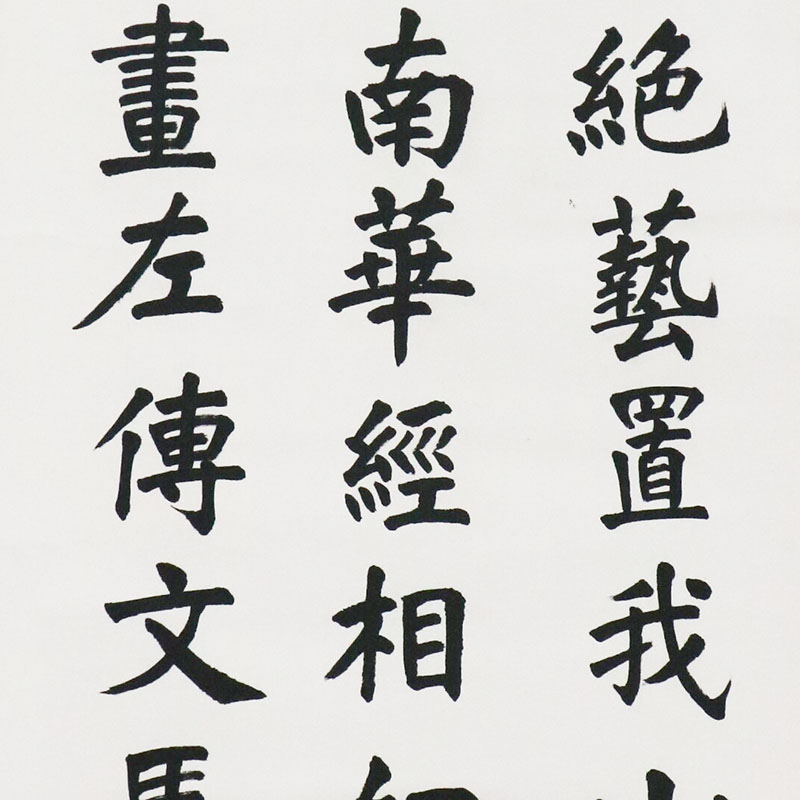 絶藝置我
南華經相
畫左傳文馬